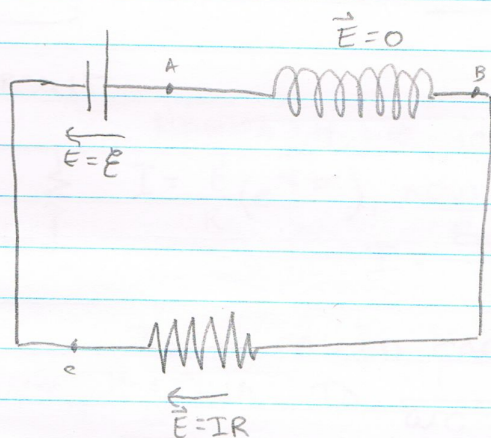 E⃗ = 0
A
B
E = ℰ
c
E⃗ = IR